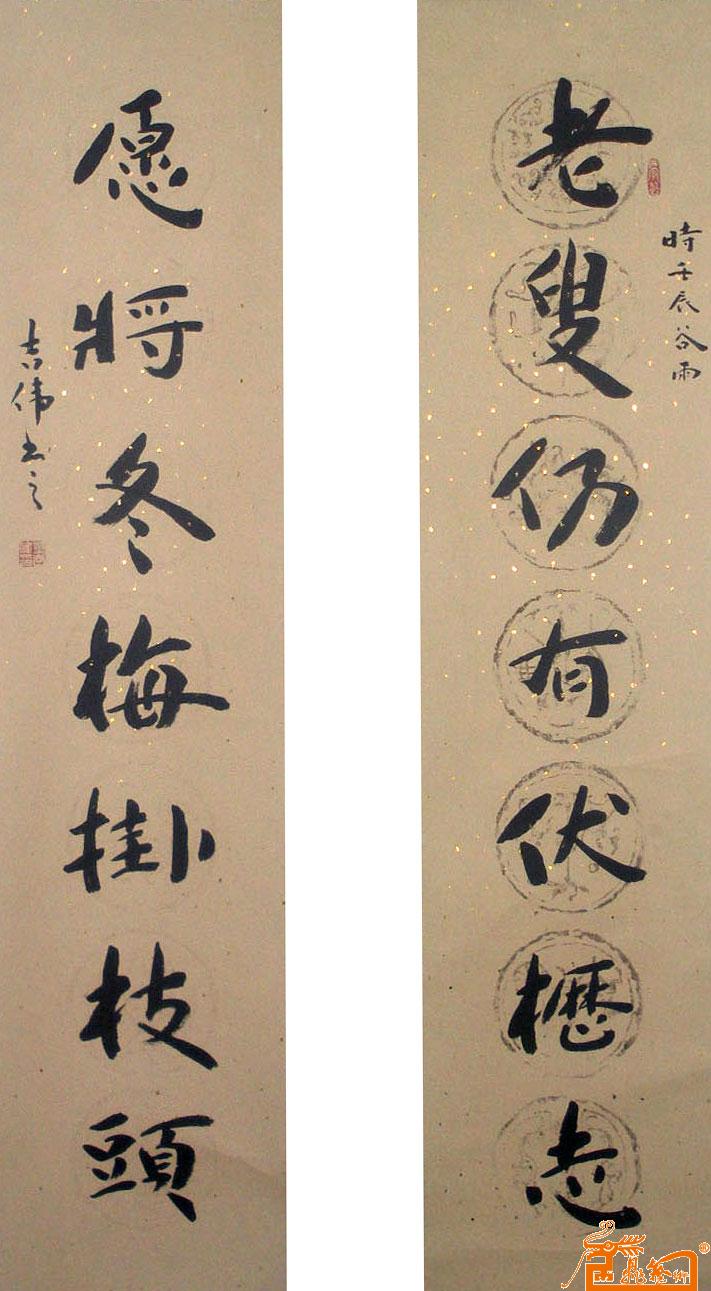 時壬辰谷雨
老叟仍有伏櫪志
愿將冬梅掛枝頭
吉伟书之